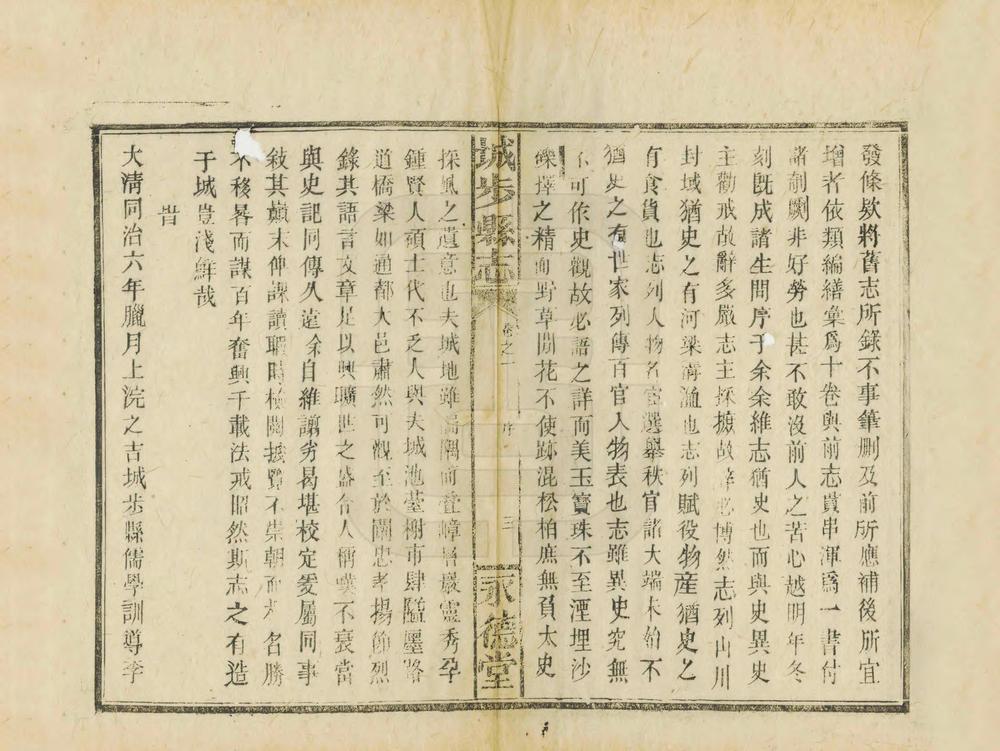 發條欵將舊志所錄不事筆刪及前所應補後所宜
增者依類編繕彙爲十卷與前志貫串渾爲一書付
諸剞劂非好勞也甚不敢沒前人之苦心越明年冬
刻既成諸生問序于余余維志猶史也而與史異史
主勸戒故辭多嚴志主採摭故辭必博然志列山川
封域猶史之有河渠溝洫也志列賦役物產猶史之
有食貨也志列人物名宦選舉秩官諸大端未始不
猶史之有世家列傳百官人物表也志雖異史究無
不可作史觀故必語之詳而美玉寶珠不至湮埋沙
礫擇之精而野草閒花不使跡混松柏庶無負太史
城步縣志
卷之一
序
三
永德堂
採風之遺意也夫城地雖褊隅而叠嶂層巖靈秀孕
鍾賢人碩士代不乏人與夫城池臺榭市肆隘墨路
道橋梁如通都大邑肅然可觀至於闡忠孝揚節烈
錄其語言文章足以興曠世之盛令人稱嘆不衰當
與史記同傳久遠余自維譾劣曷堪校定爰屬同事
敍其巔末俾課讀暇時檢閱披覽不崇朝而知名勝
不移晷而謀百年奮興千載法戒昭然斯志之有造
于城豈淺鮮哉
旹
大清同治六年臘月上浣之吉城步縣儒學訓導李